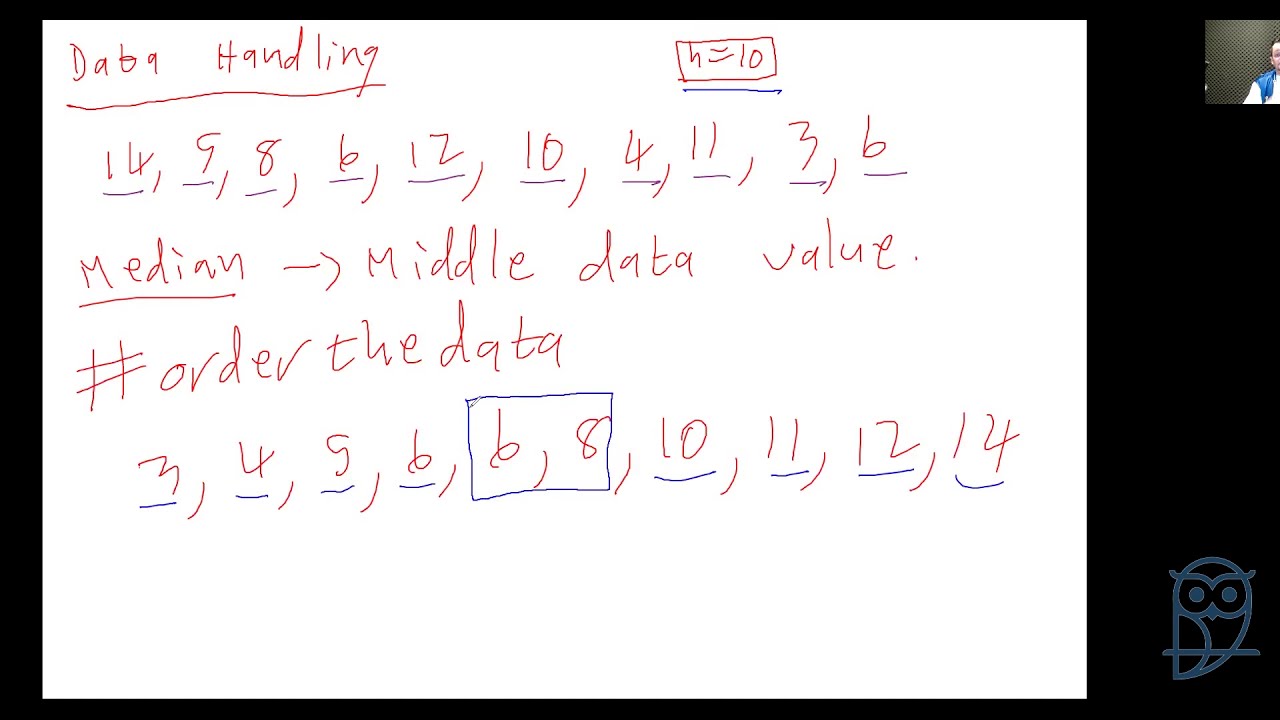 Data Handling
n=10
14, 5, 8, 6, 12, 10, 4, 11, 3, 6
Median -> Middle data value.
# order the data
3, 4, 5, 6, 6, 8, 10, 11, 12, 14